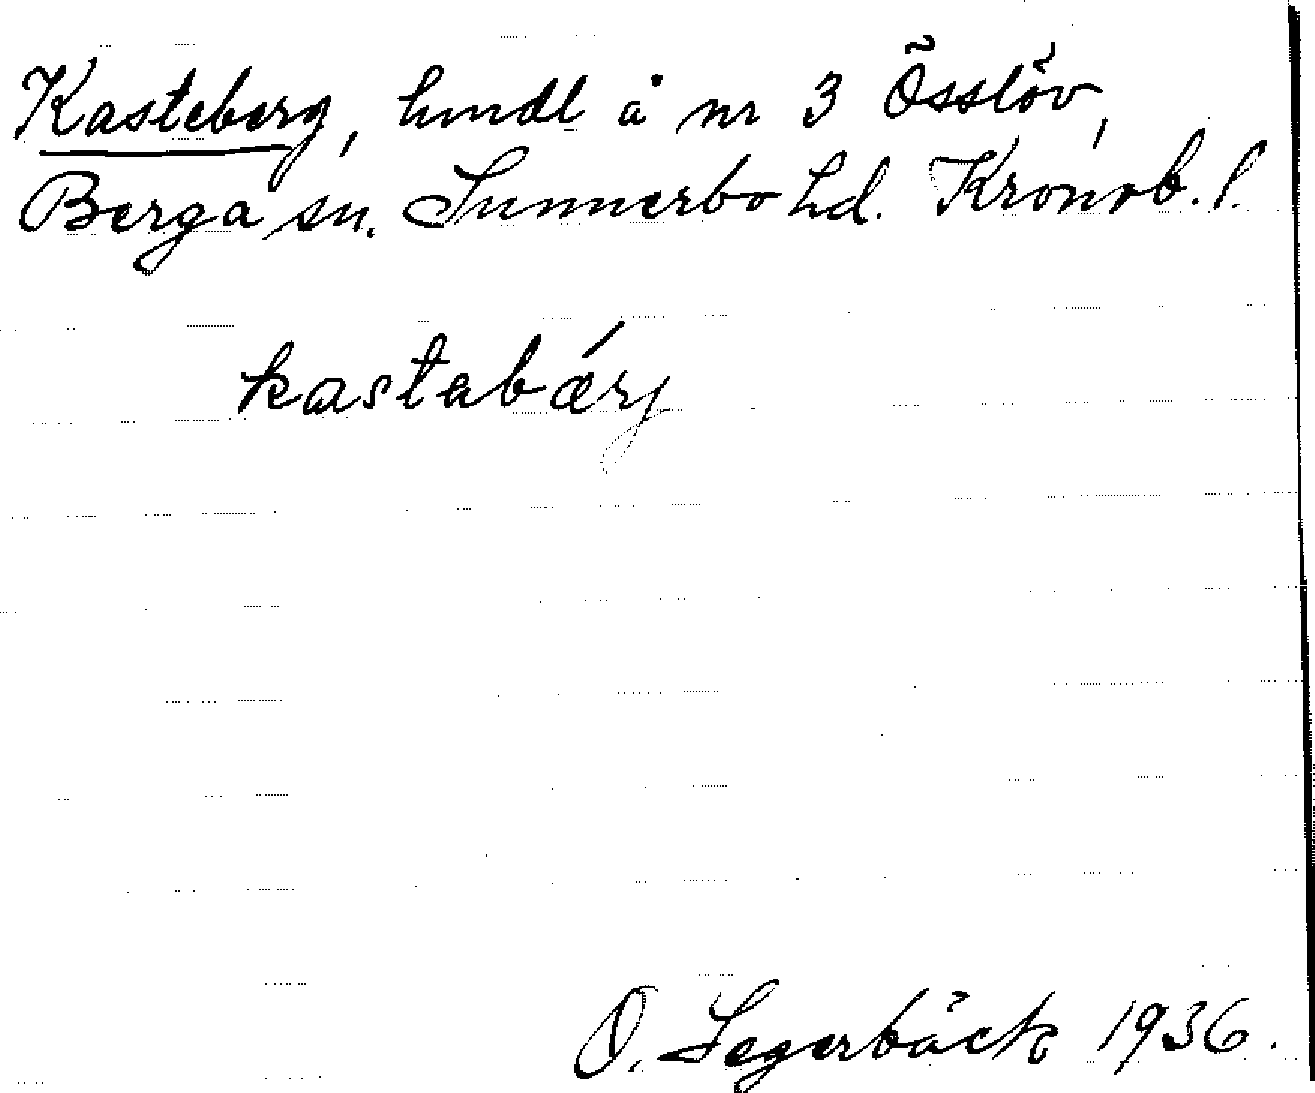 Kasteberg, hmdl å nr 3 Össlöv,
Berga sn. Sunnerbo hd. Kronob. l.
kastabǽrj
O. Segerbäck 1936.